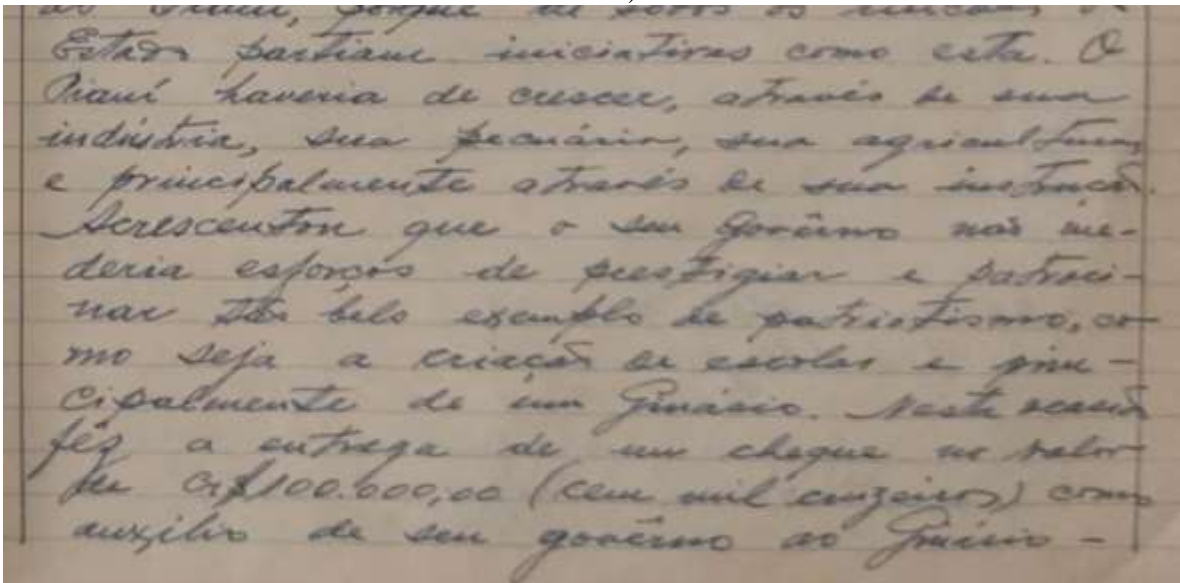 do Piauí, porque de todos os rincões do
Estado partiam iniciativas como esta. O
Piauí haveria de crescer, através de sua
indústria, sua pecuária, sua agricultura,
e principalmente através de sua instrução.
Acrescentou que o seu Govêrno não me-
deria esforços de prestigiar e patroci-
nar tão belo exemplo de patriotismo, co-
mo seja a criação de escolas e prin-
cipalmente de um Ginásio. Nesta ocasião
fêz a entrega de um cheque no valor
de Cr$100.000,00 (cem mil cruzeiros) como
auxílio de seu govêrno ao Ginásio -